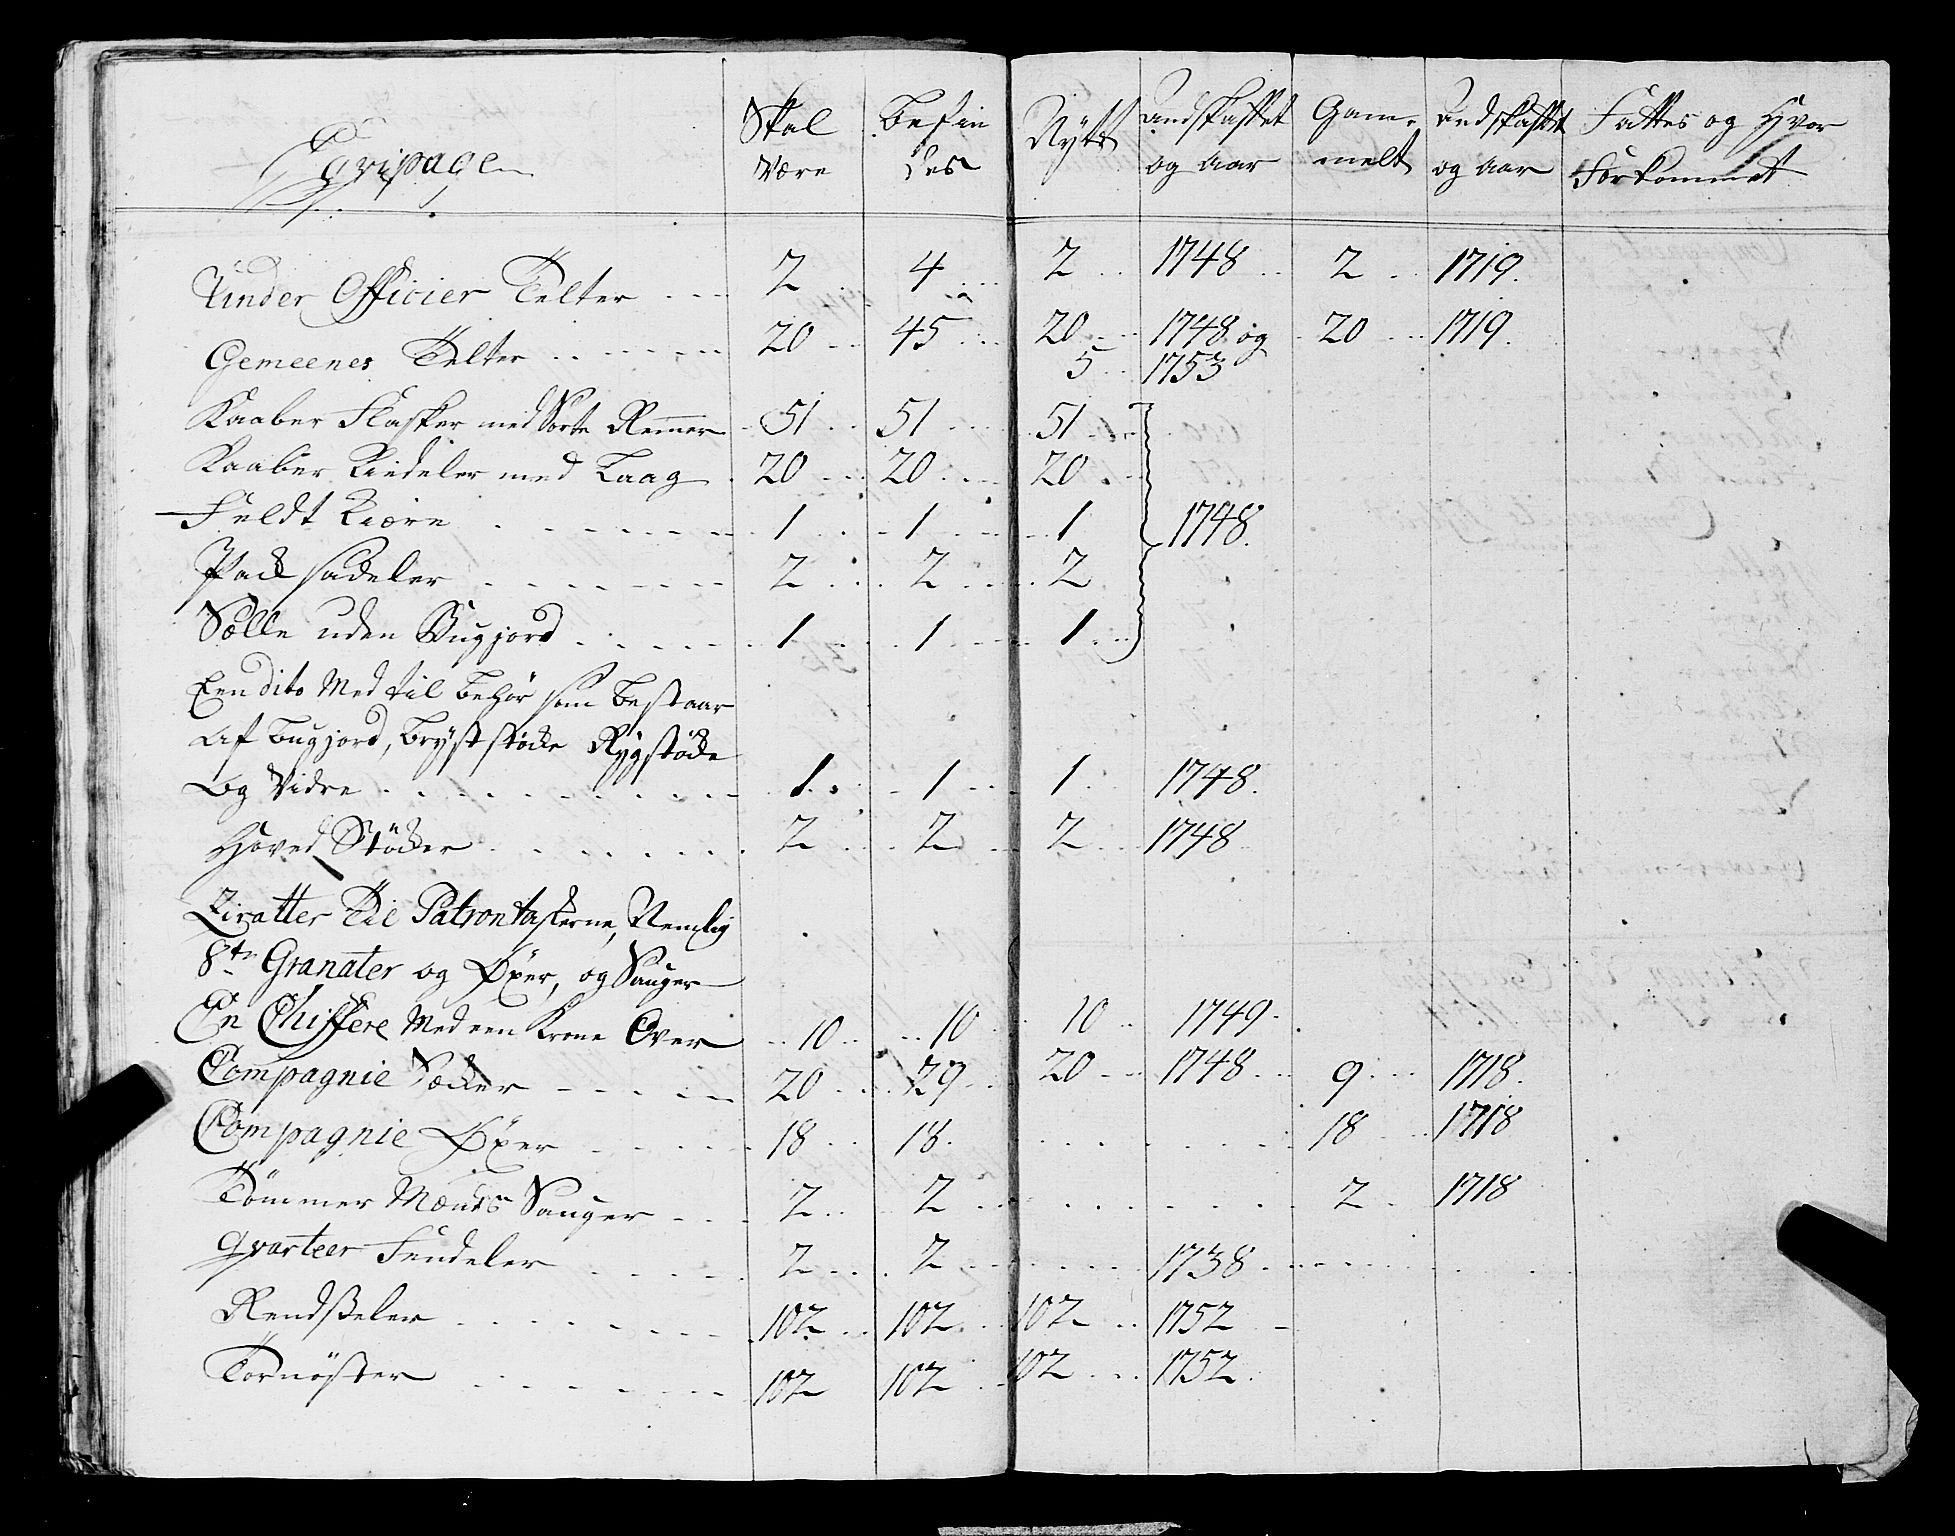 Eqvipage
Skal Være | Befindes | Nytt | andskaffet og aar | Gammelt | andskaffet og aar | Fattes og Hvor Forkommet
Under Officier Telter 2 4 2 1748 2 1719.
Gemeenes Telter 20 45 20 1748 og 20 1719.
5 1753
Kaaber Flasker med Sorte Remmer 51 51 51
Kaaber Kiedeler med Laag 20 20 20
Feldt Kiære 1 1 1 1748.
Pack sadeler 2 2 2
Sælle uden Bugjord 1 1 1
Een dito Med til behør som bestaar
Af bugjord, brÿst støcke Rygstøcke
Og Vidre 1 1 1 1748.
Hoved Støcker 2 2 2 1748
Ziratter Til Patrontaskerne, Nemlig
8te Granater og Øxer, og Sauger
En Chiffere Med een Krone Over 10 10 10 1749.
Compagnie Sæcker 20 29 20 1748 9 1718.
Compagnie Øxer 18 18. 18 1718
Tömmer Mænds Sauger 2 2 2 1718
qvarteer Fendeler 2 2 1738
Rendsßeler 102 102 102 1752
Tornöster 102 102 102 1752.